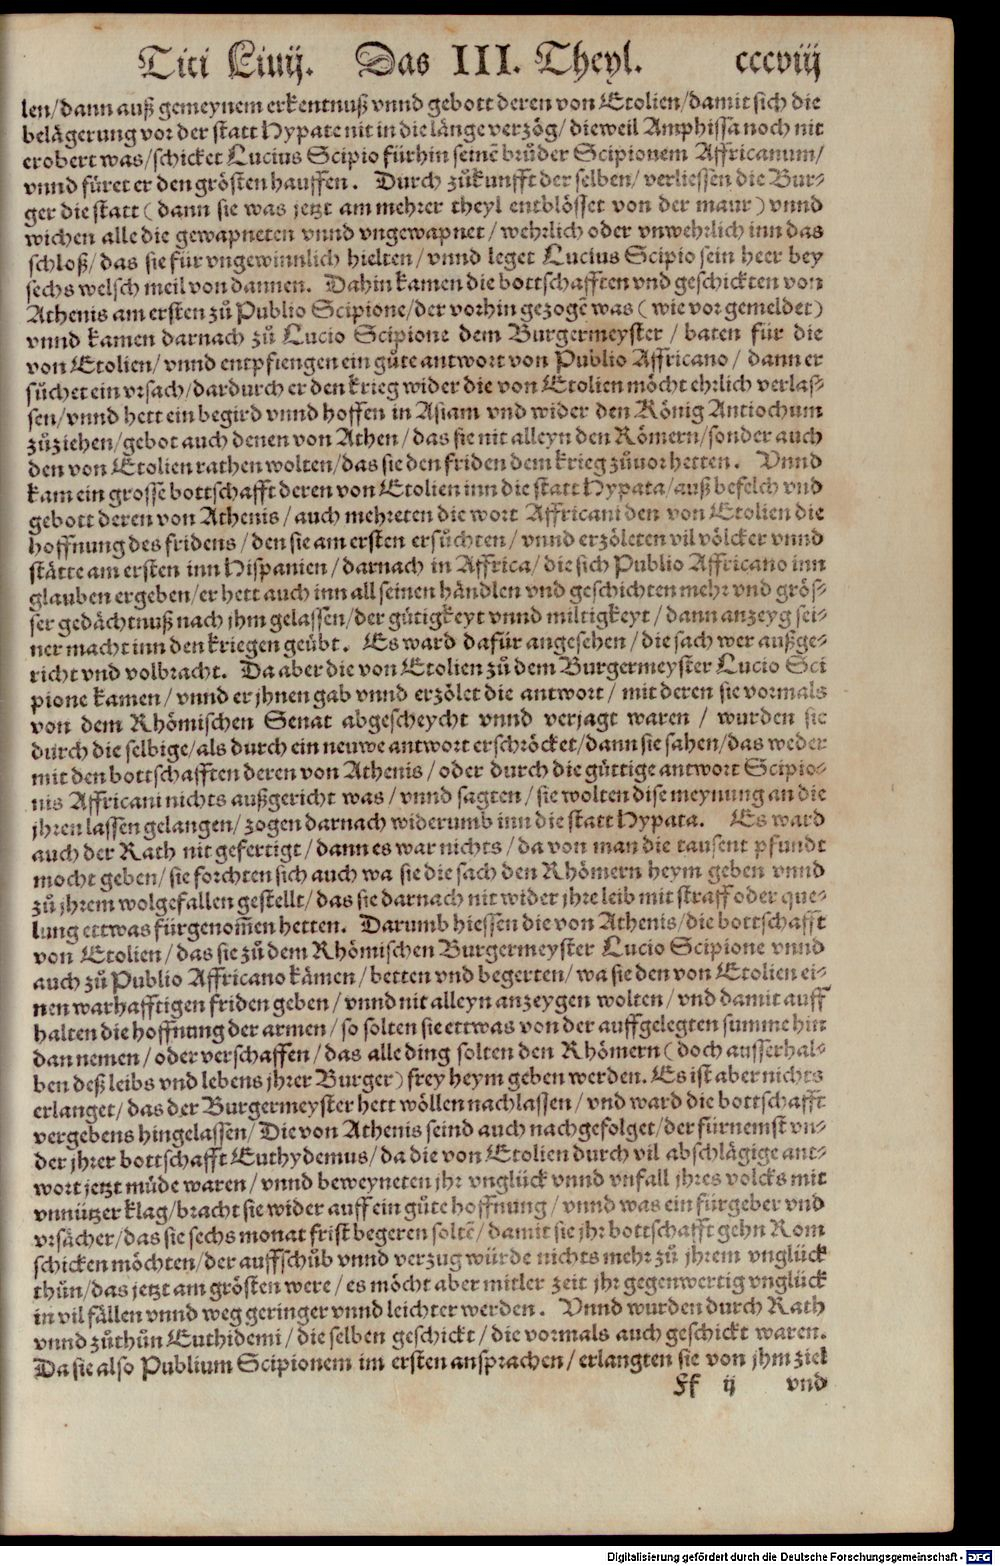 Titi Liuij. Das III. Theyl. cccviij
len/dann auß gemeynem erkentnuß vnnd gebott deren von Etolien/damit sich die
belägerung vor der statt Hypate nit in die länge verzög/dieweil Amphissa noch nit
erobert was/schicket Lucius Scipio fürhin seinē brůder Scipionem Affricanum/
vnnd füret er den grösten hauffen. Durch zůkunfft der selben/verliessen die Bur⸗
ger die statt (dann sie was jetzt am mehrer theyl entblösset von der maur) vnnd
wichen alle die gewapneten vnnd vngewapnet/wehrlich oder vnwehrlich inn das
schloß/das sie für vngewinnlich hielten/vnnd leget Lucius Scipio sein heer bey
sechs welsch meil von dannen. Dahin kamen die bottschafften vnd geschickten von
Athenis am ersten zů Publio Scipione/der vorhin gezogē was (wie vor gemeldet)
vnnd kamen darnach zů Lucio Scipione dem Burgermeyster/baten für die
von Etolien/vnnd entpfiengen ein gůte antwort von Publio Affricano/dann er
sůchet ein vrsach/dardurch er den krieg wider die von Etolien möcht ehrlich verlas⸗
sen/vnnd hett ein begird vnnd hoffen in Asiam vnd wider den König Antiochum
zůziehen/gebot auch denen von Athen/das sie nit alleyn den Römern/sonder auch
den von Etolien rathen wolten/das sie den friden dem krieg zůuor hetten. Vnnd
kam ein grosse bottschafft deren von Etolien inn die statt Hypata/auß befelch vnd
gebott deren von Athenis/auch mehreten die wort Affricani den von Etolien die
hoffnung des fridens/den sie am ersten ersůchten/vnnd erzöleten vil völcker vnnd
stätte am ersten inn Hispanien/darnach in Affrica/die sich Publio Affricano inn
glauben ergeben/er hett auch inn all seinen händlen vnd geschichten mehr vnd grös⸗
ser gedächtnuß nach jhm gelassen/der gütigkeyt vnnd miltigkeyt/dann anzeyg sei⸗
ner macht inn den kriegen geübt. Es ward dafür angesehen/die sach wer außge⸗
richt vnd volbracht. Da aber die von Etolien zů dem Burgermeyster Lucio Sci
pione kamen/vnnd er jhnen gab vnnd erzölet die antwort/mit deren sie vormals
von dem Rhömischen Senat abgescheycht vnnd verjagt waren/wurden sie
durch die selbige/als durch ein neuwe antwort erschröcket/dann sie sahen/das weder
mit den bottschafften deren von Athenis/oder durch die güttige antwort Scipio⸗
nis Affricani nichts außgericht was/vnnd sagten/sie wolten dise meynung an die
jhren lassen gelangen/zogen darnach widerumb inn die statt Hypata. Es ward
auch der Rath nit gefertigt/dann es war nichts/da von man die tausent pfundt
mocht geben/sie forchten sich auch wa sie die sach den Rhömern heym geben vnnd
zů jhrem wolgefallen gestellt/das sie darnach nit wider jhre leib mit straff oder que⸗
lung ettwas fürgenom̄en hetten. Darumb hiessen die von Athenis/die bottschafft
von Etolien/das sie zů dem Rhömischen Burgermeyster Lucio Scipione vnnd
auch zů Publio Affricano kämen/betten vnd begerten/wa sie den von Etolien ei⸗
nen warhafftigen friden geben/vnnd nit alleyn anzeygen wolten/vnd damit auff
halten die hoffnung der armen/so solten sie ettwas von der auffgelegten summe hin
dan nemen/oder verschaffen/das alle ding solten den Rhömern (doch ausserhal⸗
ben deß leibs vnd lebens jhrer Burger) frey heym geben werden. Es ist aber nichts
erlanget/das der Burgermeyster hett wöllen nachlassen/vnd ward die bottschafft
vergebens hingelassen/Die von Athenis seind auch nachgefolget/der fürnemst vn⸗
der jhrer bottschafft Euthydemus/da die von Etolien durch vil abschlägige ant⸗
wort jetzt müde waren/vnnd beweyneten jhr vnglück vnnd vnfall jhres volcks mit
vnnützer klag/bracht sie wider auff ein gůte hoffnung/vnnd was ein fürgeber vnd
vrsächer/das sie sechs monat frist begeren soltē/damit sie jhr bottschafft gehn Rom
schicken möchten/der auffschůb vnnd verzug würde nichts mehr zů jhrem vnglück
thůn/das jetzt am grösten were/es möcht aber mitler zeit jhr gegenwertig vnglück
in vil fällen vnnd weg geringer vnnd leichter werden. Vnnd wurden durch Rath
vnnd zůthůn Euthidemi/die selben geschickt/die vormals auch geschickt waren.
Da sie also Publium Scipionem im ersten ansprachen/erlangten sie von jhm ziel
Ff ij vnd
Digitalisierung gefördert durch die Deutsche Forschungsgemeinschaft - DFG